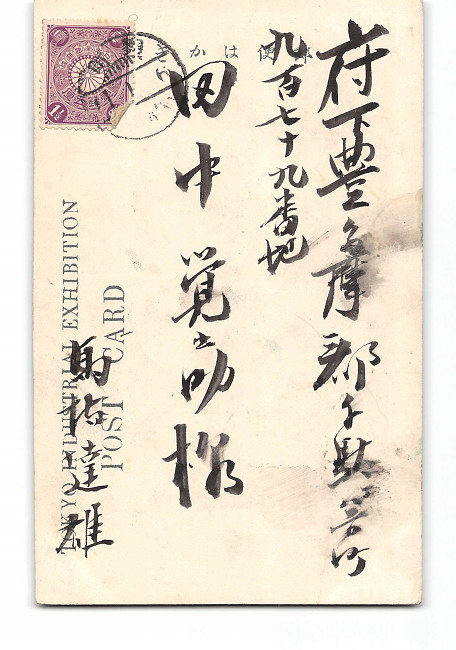 府下豊多摩郡千駄ヶ谷町
九百七十九番地
田中覚之助様
馬
達雄
郵便はかき
TOKYO INDUSTRIAL EXHIBITION
POST CARD
1½